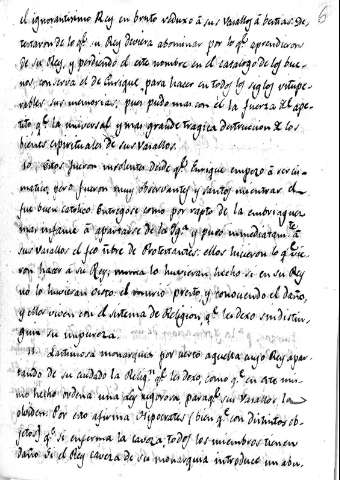 6
el ignorantismo Rey en bruto reduxo â sus Vasallos â bestias. De-
testaron de lo qᵉ. su Rey deviera abominar por lo qᵉ. aprendieron
de su Rey, y perdiendo el este nombre en el catalogo de los bue-
nos, conserva el de Enrique, para hacer en todos los siglos vitupe-
rables sus memorias; pues pudo mas con el la fuerza del ape-
tito qᵉ. la universal y mas grande tragica destruccion de los
bienes espirituales de sus Vasallos.
10. Estos fueron insolentes desde qᵉ. Enrique empezo â ser cis-
matico, pero fueron muy observantes y santos mientras el
fue buen catolico. Entregose como por rapto de la embriaguez
mas infame â apartarse de la Ygᵃ. y puso inmediatamᵗᵉ. â
sus vasallos el feo nbre de Protestantes: ellos hicieron lo qᵉ. vie-
ron hacer â su Rey; nunca lo huvieran hecho si en su Rey
no lo huvieran visto el
presto, y conociendo el daño,
y ellos viven con el sistema de Religion, qᵉ. les dexo sin distin-
guir su impureza.
11. Lastimosa monarquia por cierto aquella cuyo Rey apar-
tando de su cuidado la Religⁿ. qᵉ. les dexo, como qᵉ. en este mis-
mo hecho ordena una ley rigorosa paraqᵉ. sus Vasallos la
olviden. Por esto afirma Hipocrates (bien qᵉ. con distintos ob-
jetos) qᵉ. si enferma la caveza, todos los miembros tienen
daño. Si el Rey caveza de su monarquia introduce un abu-